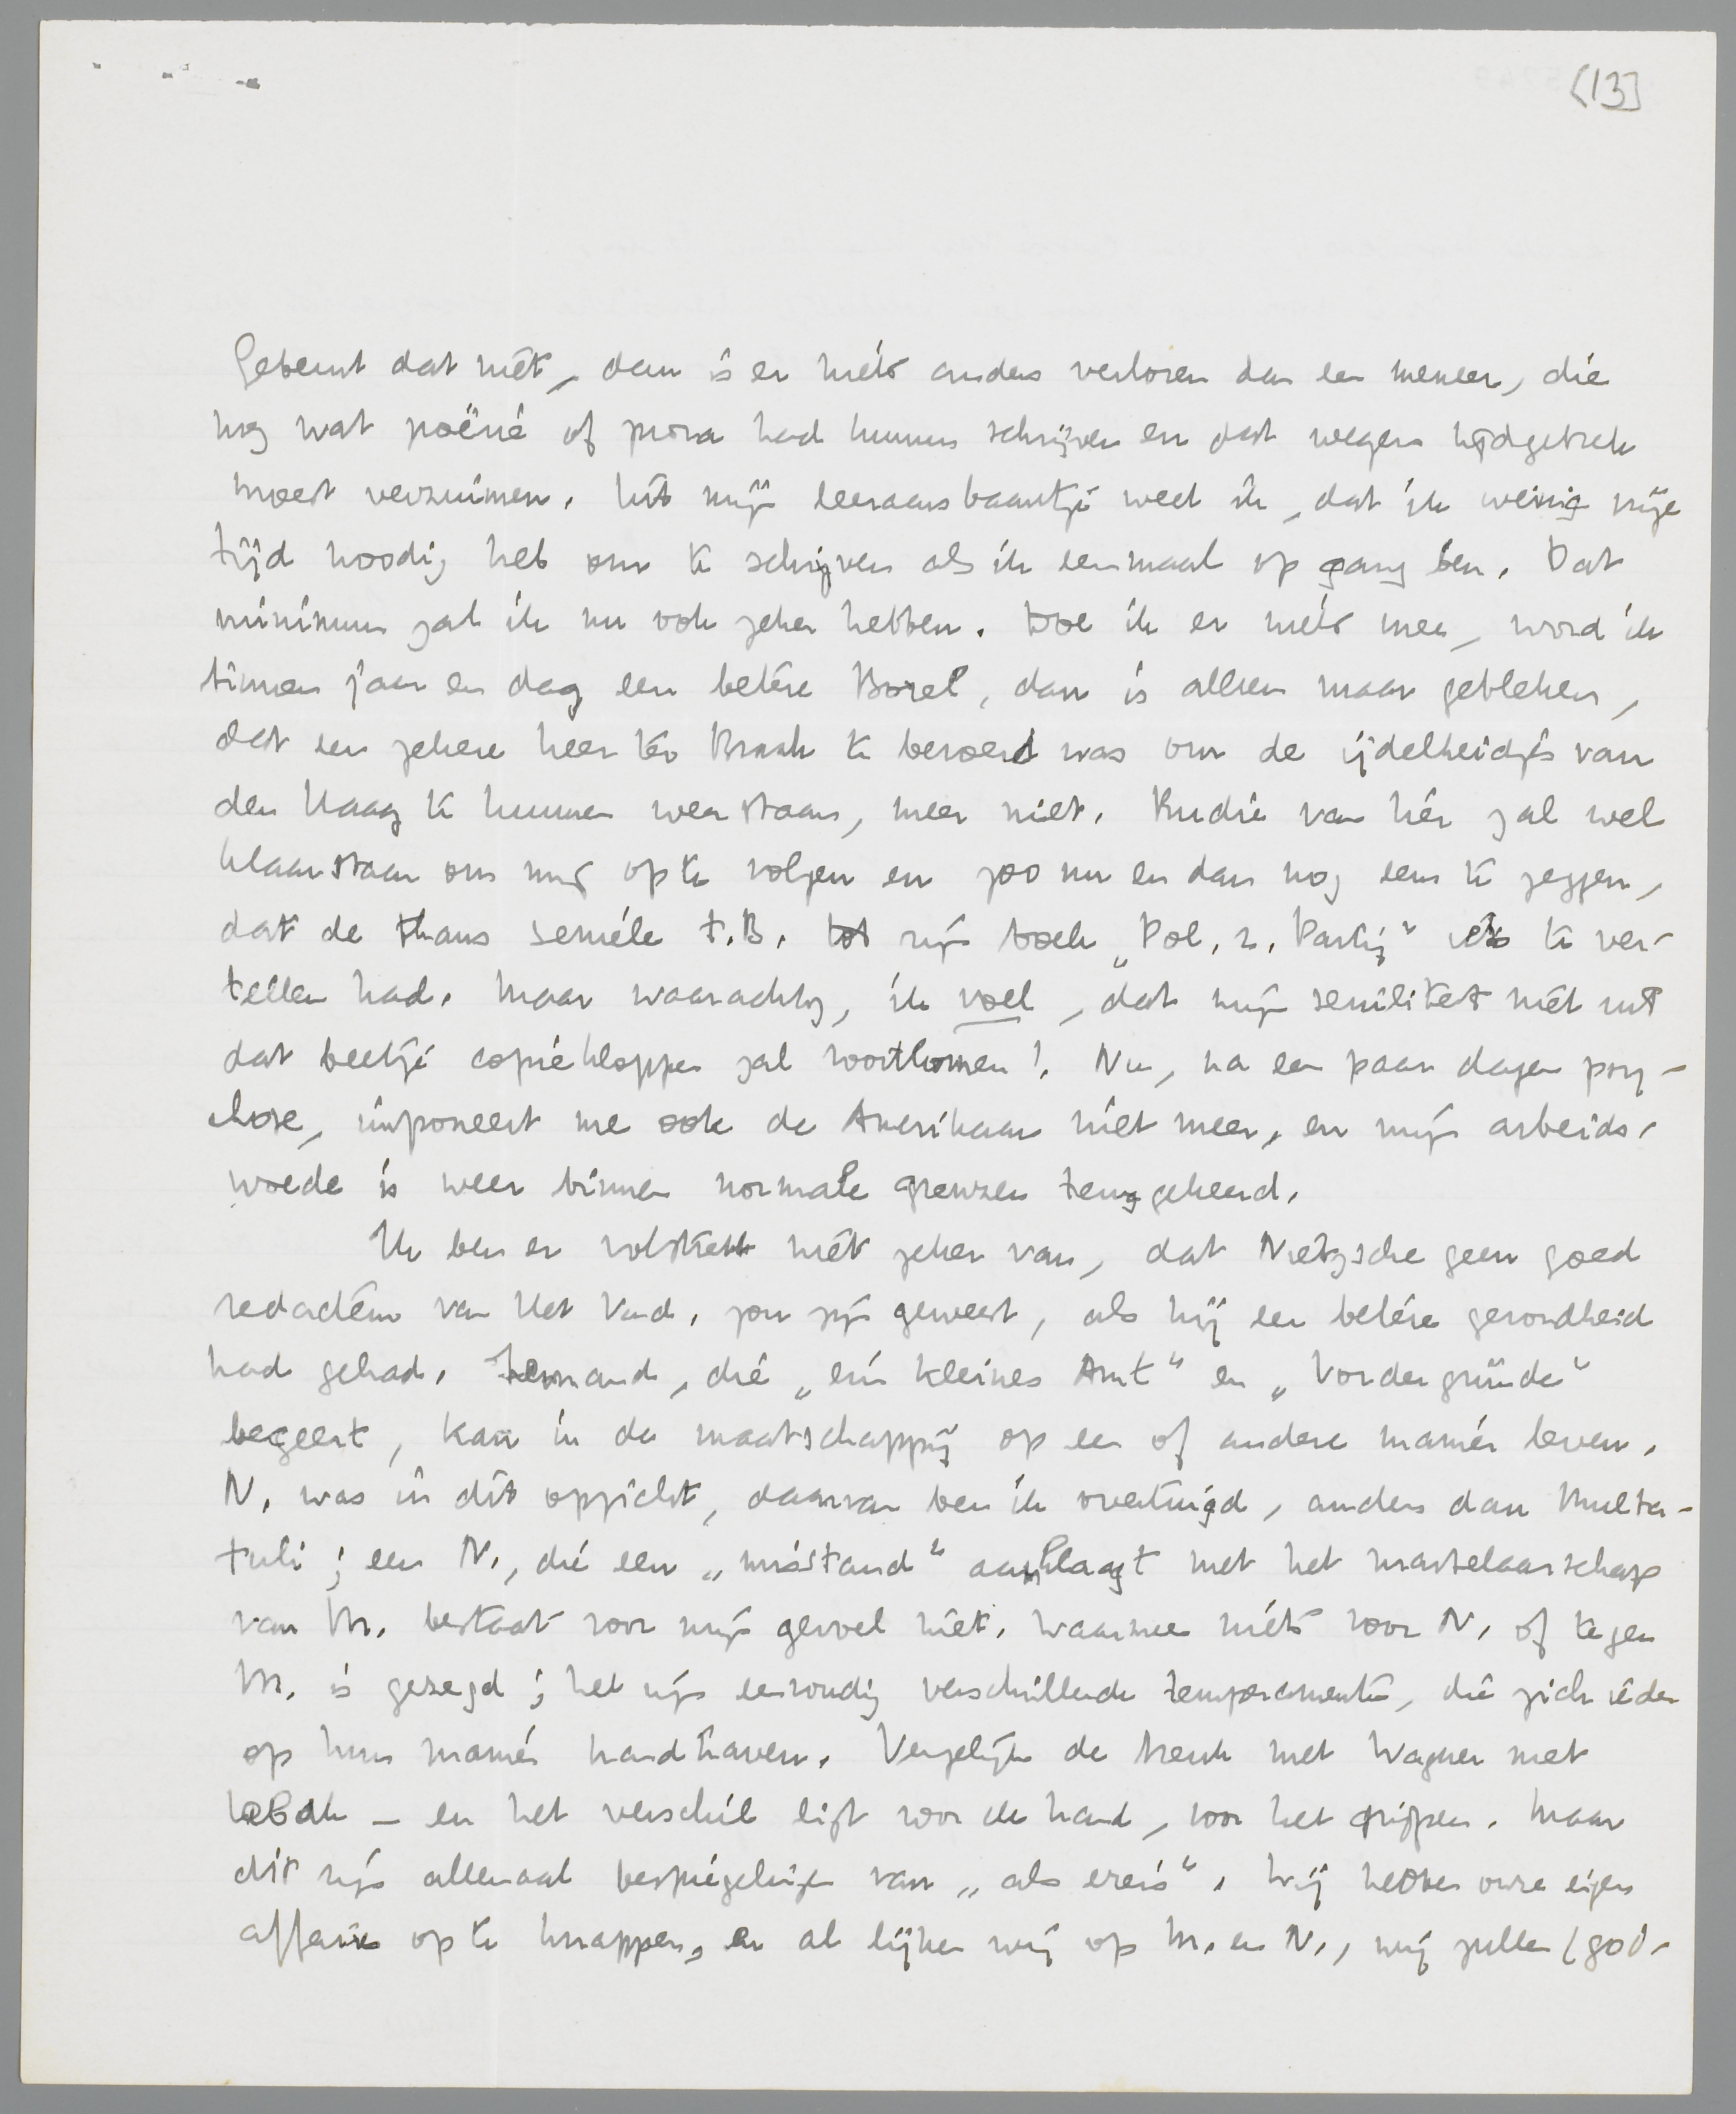 [13]
Gebeurt dat niet, dan is er niets anders verloren dan een meneer, die
nog wat poëzie of proza had kunnen schrijven en dat wegens tijdgebrek
moest verzuimen. Uit mijn leeraarsbaantje weet ik, dat ik weinig vrije
tijd noodig heb om te schrijven als ik eenmaal op gang ben. Dat
minimum zal ik nu ook zeker hebben. Doe ik er niets mee, word ik
binnen jaar en dag een betere Borel, dan is alleen maar gebleken,
dat een zekere heer ter Braak te beroerd was om de ijdelheidjes van
den Haag te kunnen weerstaan, meer niet. Rudie van hier zal wel
klaarstaan om mij op te volgen en zoo nu en dan nog eens te zeggen,
dat de thans seniele t.B. tot zijn boek „Pol. z. Partij" iets te ver-
tellen had. Maar waarachtig, ik voel, dat mijn seniliteit niet uit
dat beetje copiekloppen zal voortkomen! Nu, na een paar dagen psy-
chose, imponeert me ook de Amerikaan niet meer, en mijn arbeids-
woede is weer binnen normale grenzen teruggekeerd.
Ik ben er volstrekt niet zeker van, dat Nietzsche geen goed
redacteur van Het Vad. zou zijn geweest, als hij een betere gezondheid
had gehad. Iemand, die „ein kleines Amt" en „Vordergründe"
begeert, kan in de maatschappij op een of andere manier leven.
N. was in dit opzicht, daarvan ben ik overtuigd, anders dan Multa-
tuli; een N., die een „misstand" aanklaagt met het martelaarschap
van M. bestaat voor mijn gevoel niet. Waarmee niets voor N. of tegen
M. is gezegd; het zijn eenvoudig verschillende temperamenten, die zich ieder
op hun manier handhaven. Vergelijk de breuk met Wagner met
Lebak – en het verschil ligt voor de hand, voor het grijpen. Maar
dit zijn allemaal bespiegelingen van „als ereis". Wij hebben onze eigen
affaires op te knappen, en al lijken wij op M. en N., wij zullen (god-